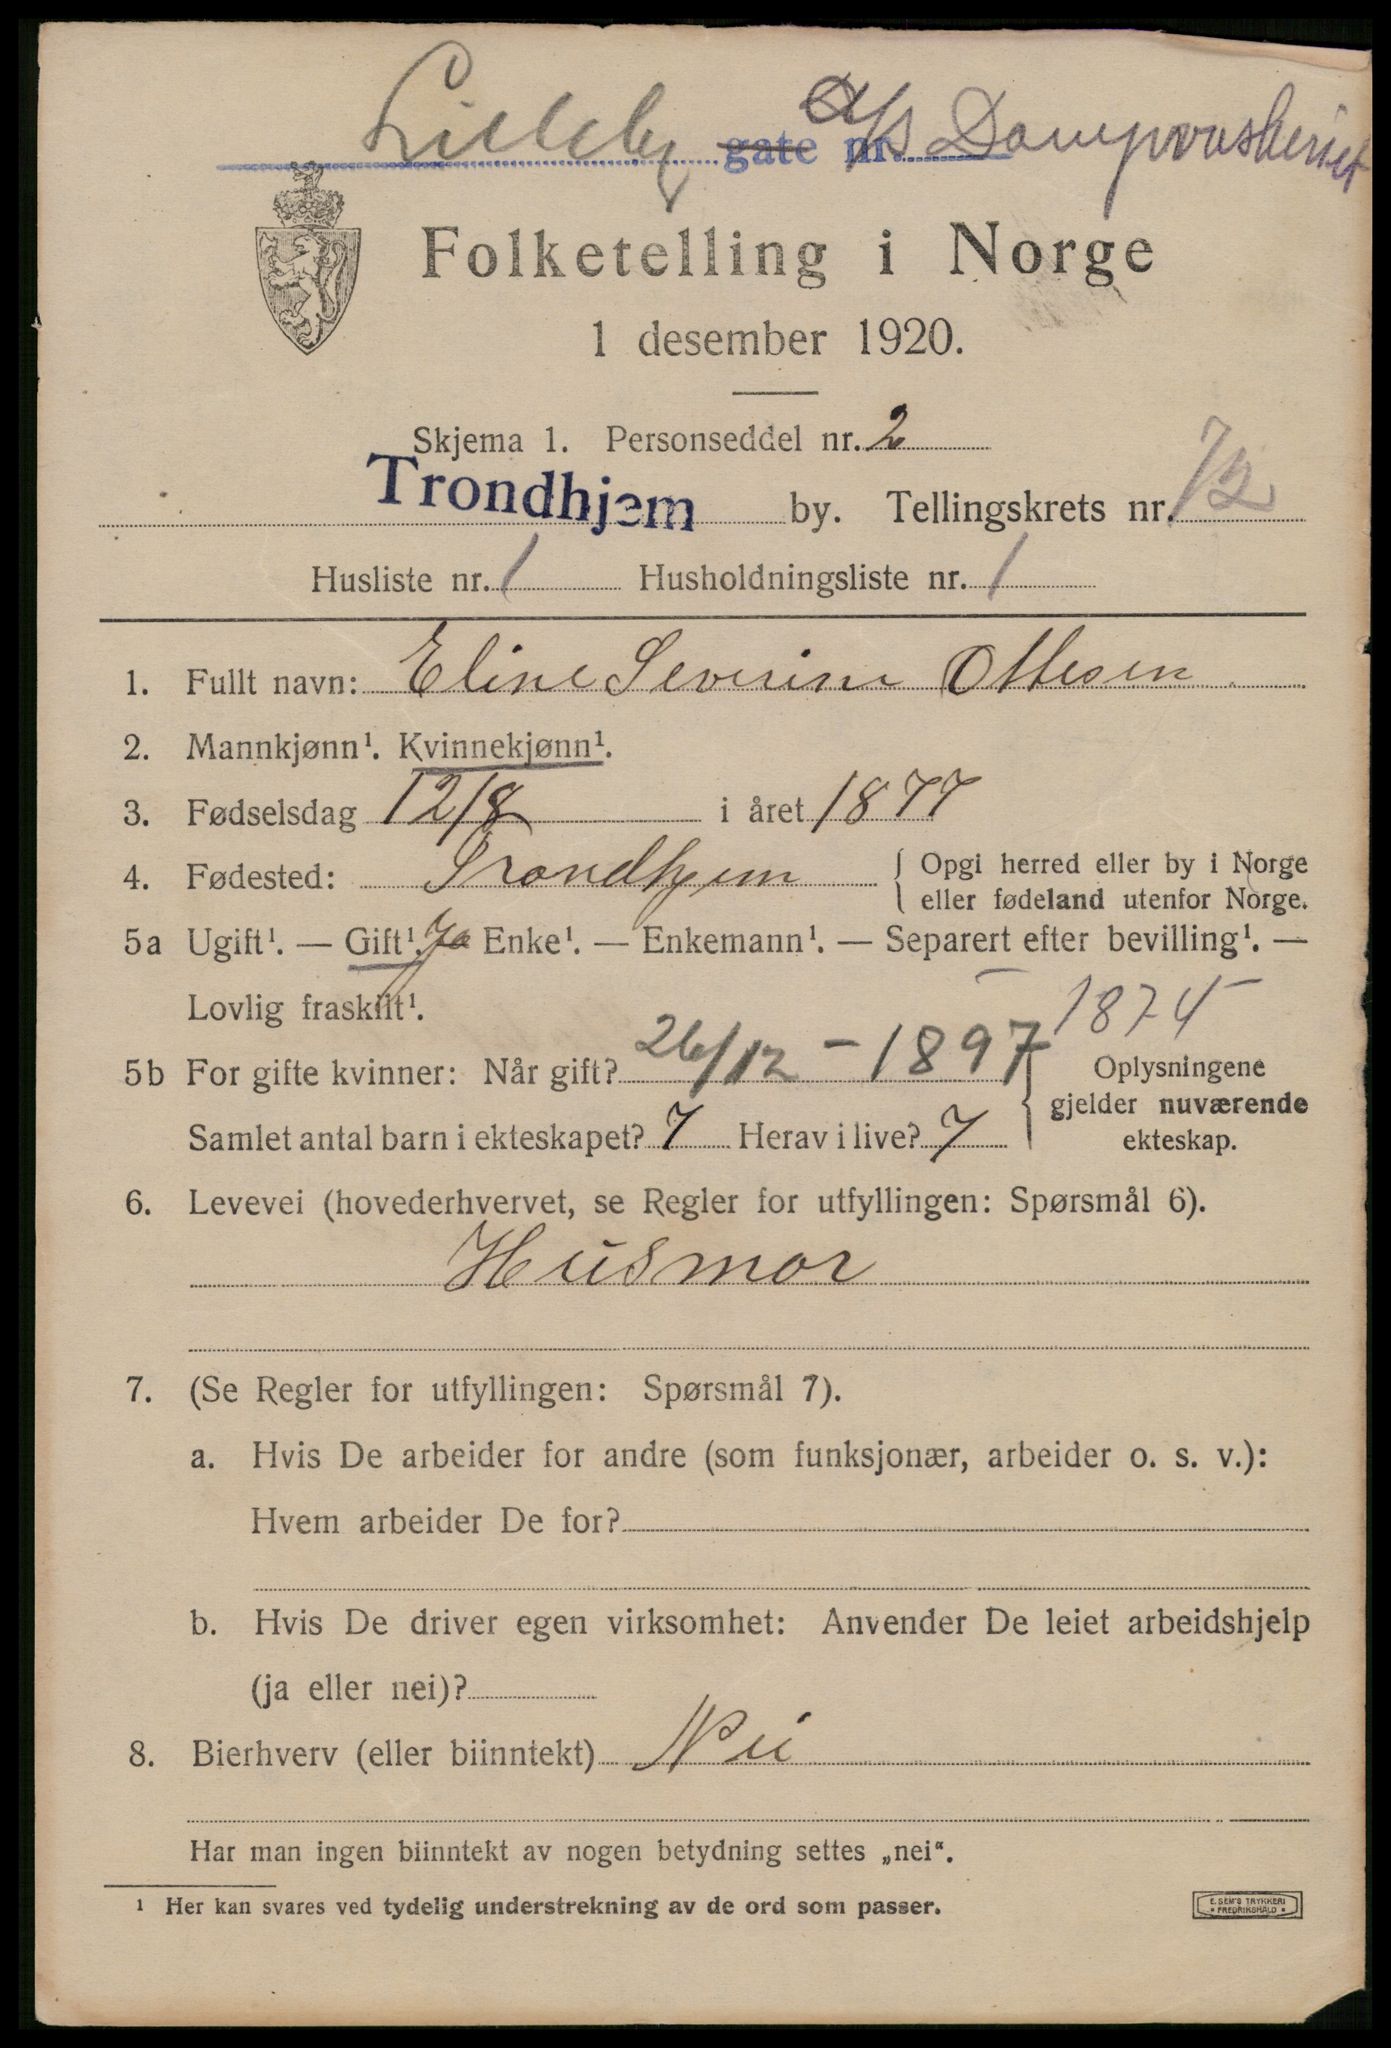 Lilleby gate nr. A/S Dampvaskeriet
Folketelling i Norge
1 desember 1920.
Skjema 1. Personseddel nr. 2
Trondhjem by. Tellingskrets nr. 72
Husliste nr. 1 Husholdningsliste nr. 1
1. Fullt navn: Eline Severine Ottesen
2. Mannkjønn¹. Kvinnekjønn¹.
3. Fødselsdag 12/8 i året 1877
4. Fødested: Trondhjem { Opgi herred eller by i Norge
eller fødeland utenfor Norge.
5a Ugift¹. — Gift¹. Ja Enke¹. — Enkemann¹. — Separert efter bevilling¹. —
Lovlig fraskilt¹.
1874
5b For gifte kvinner: Når gift? 26/12 - 1897
Samlet antal barn i ekteskapet? 7 Herav i live? 7
Oplysningene
gjelder nuværende
ekteskap.
6. Levevei (hovederhvervet, se Regler for utfyllingen: Spørsmål 6).
Husmor
7. (Se Regler for utfyllingen: Spørsmål 7).
a. Hvis De arbeider for andre (som funksjonær, arbeider o. s. v.):
Hvem arbeider De for?
b. Hvis De driver egen virksomhet: Anvender De leiet arbeidshjelp
(ja eller nei)?
8. Bierhverv (eller biinntekt) Nei
Har man ingen biinntekt av nogen betydning settes „nei".
¹ Her kan svares ved tydelig understrekning av de ord som passer.
E. SEM'S TRYKKERI
• FREDRIKSHALD •